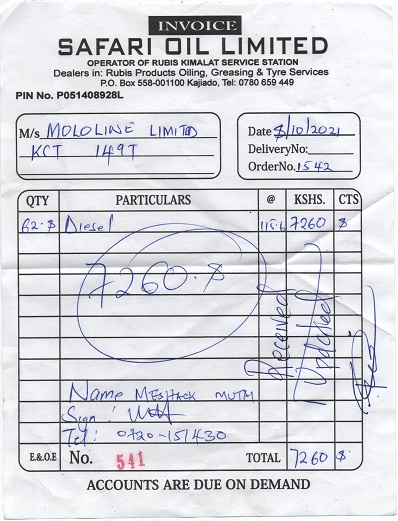 INVOICE
SAFARI OIL LIMITED
OPERATOR OF RUBIS KIMALAT SERVICE STATION
Dealers in: Rubis Products Oiling, Greasing & Tyre Services
P.O. Box 558-001100 Kajiado, Tel: 0780 659 449
PIN No. P051408928L
M/s MOLOLINE LIMITED
KCT 149T
Date 8/10/2021
DeliveryNo:
OrderNo. 1542
QTY PARTICULARS @ KSHS. CTS
62.8 Diesel 115.6 7260 $
7260.$
Received
Updated
Name MESHACK MUTM
Sign:
Tel: 0720-151430
E.&O.E No. 541 TOTAL 7260 $
ACCOUNTS ARE DUE ON DEMAND